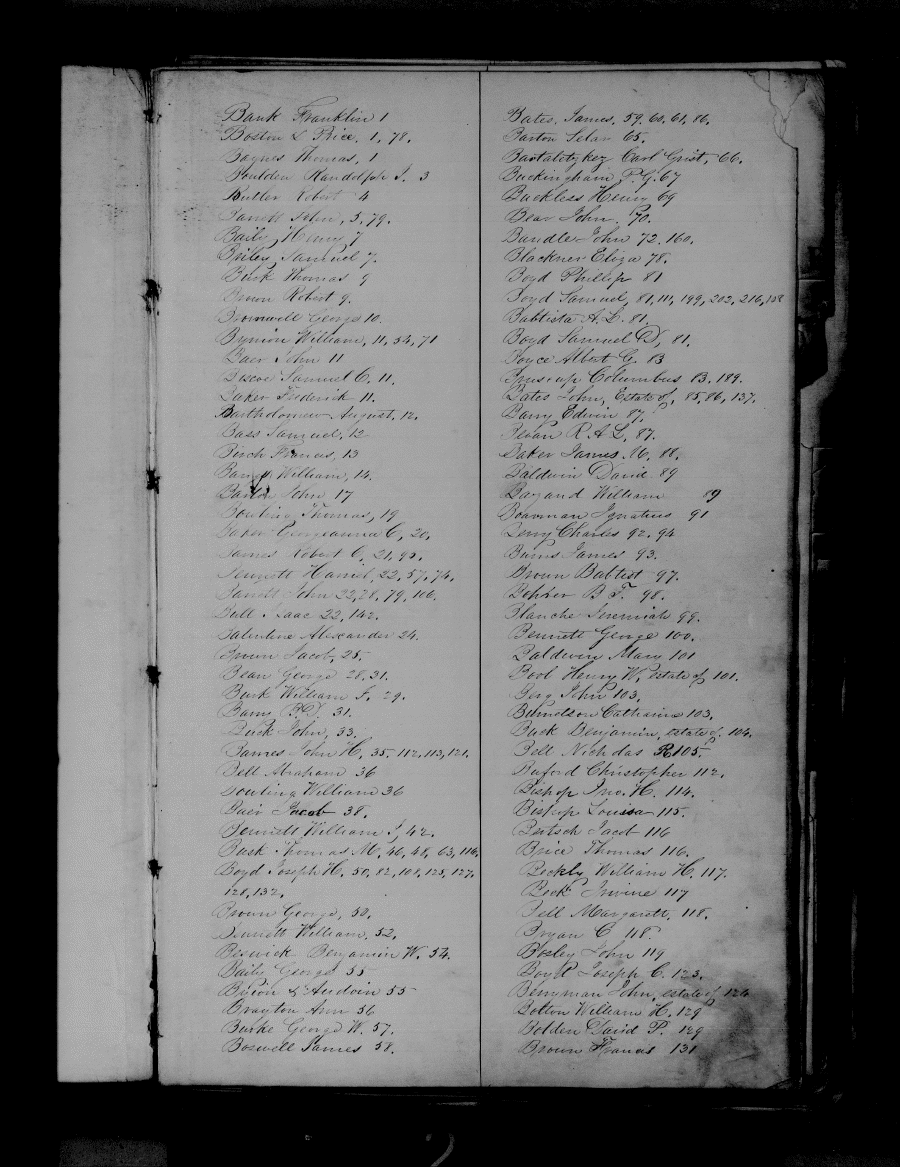 Bank Franklin 1
Boston & Price, 1, 78.
Baynes Thomas, 1
Boulden Randolph J. 3
Butler Robert 4
Barrett John, 5, 79.
Baily Henry 7
Briley Samuel 7.
Buck Thomas 9
Brown Robert 9.
Bromwell George 10.
Bynion William, 11, 54, 71
Baer John 11
Biscoe Samuel C. 11.
Baker Frederick 11.
Bartholomew August, 12.
Bass Samuel, 12
Birch Francis, 13
William, 14.
Barton John 17
Bowling Thomas, 19
Baker Georgeanna C, 20,
Barnes Robert C, 21, 90.
Bennett Hamel, 22, 57, 74,
Barrett John 22, 28, 79, 106.
Bull Isaac 22, 142.
Balentine Alexander 24.
Brown Jacob, 25.
Bean George 28, 31.
Burk William F. 29.
Barry 31.
Buck John, 33.
Barnes John H, 35, 112, 113, 121.
Bell Abraham 36
Bowling William 36
Baer Jacob 38.
Bennett William J, 42.
Bask Thomas M, 46, 48, 63, 116,
Boyd Joseph H. 50, 82, 108, 125, 127,
128, 132.
Brown George, 50.
Bennett William, 52,
Beswick Benjamin W. 54.
Baily George 55
Byron & Andoin 55
Brayton Ann 56
Burke George W. 57.
Boswell James 58.
Bates, James, 59, 60, 61, 86,
Barton Selan 65.
Bartatotykey Carl Grist, 66.
Buckingham P. G. 67
Buckless Henry 69
Bear John, 70.
Bandle John 72, 160.
Blackner Eliza 78.
Boyd Phillip 81
Boyd Samuel, 81, 111, 199, 202, 216, 158
Babtista A. L. 81.
Boyd Samuel D, 81.
Boyce Albert G. 83
Columbus 83, 189.
Bates John, Estate of, 85, 86, 137.
Barry Edwin 87,
Bevan R. A. L, 87.
Baker James 86, 88.
Baldwin David 89
Bayand William 89
Boarman Ignatius 91
Berry Charles 92, 94
Burns James 93.
Brown Babtist 97.
Bopher B F. 98.
Blanche Jeremiah 99.
Bennett George 100.
Baldwin Mary 101
Bool Henry W, estate of 101.
Berg John 103,
Burndson Catharine 103,
Buck Benjamin, estate of 104.
Bell Nicholas R 105
Buford Christopher 112.
Bishop Jno. H. 114.
Bishop Louisa 115.
Bertsch Jacob 116
Brice Thomas 116.
Beckly William H. 117.
Beck Irvine 117
Bell Margarett, 118.
Bryan C 118
Bosley John 119
Boyd Joseph C. 123.
Berryman John, estate of 126
Bolton William H. 129
Bolden David P. 129
Brown Francis 131